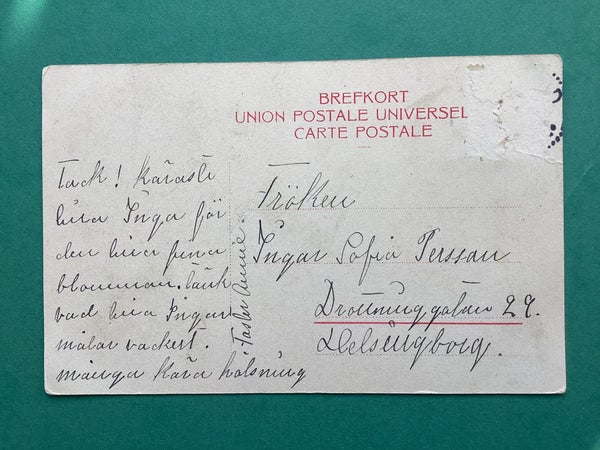 BREFKORT
UNION POSTALE UNIVERSEL
CARTE POSTALE
Tack! Käraste
lilla Inga för
den lilla fina
blomman. tänk
vad lilla Ingar
målar vackert.
många kära hälsning
Taster Annie
Fröken
Ingar Sofia Persson
Drottninggatan 29.
Helsingborg.